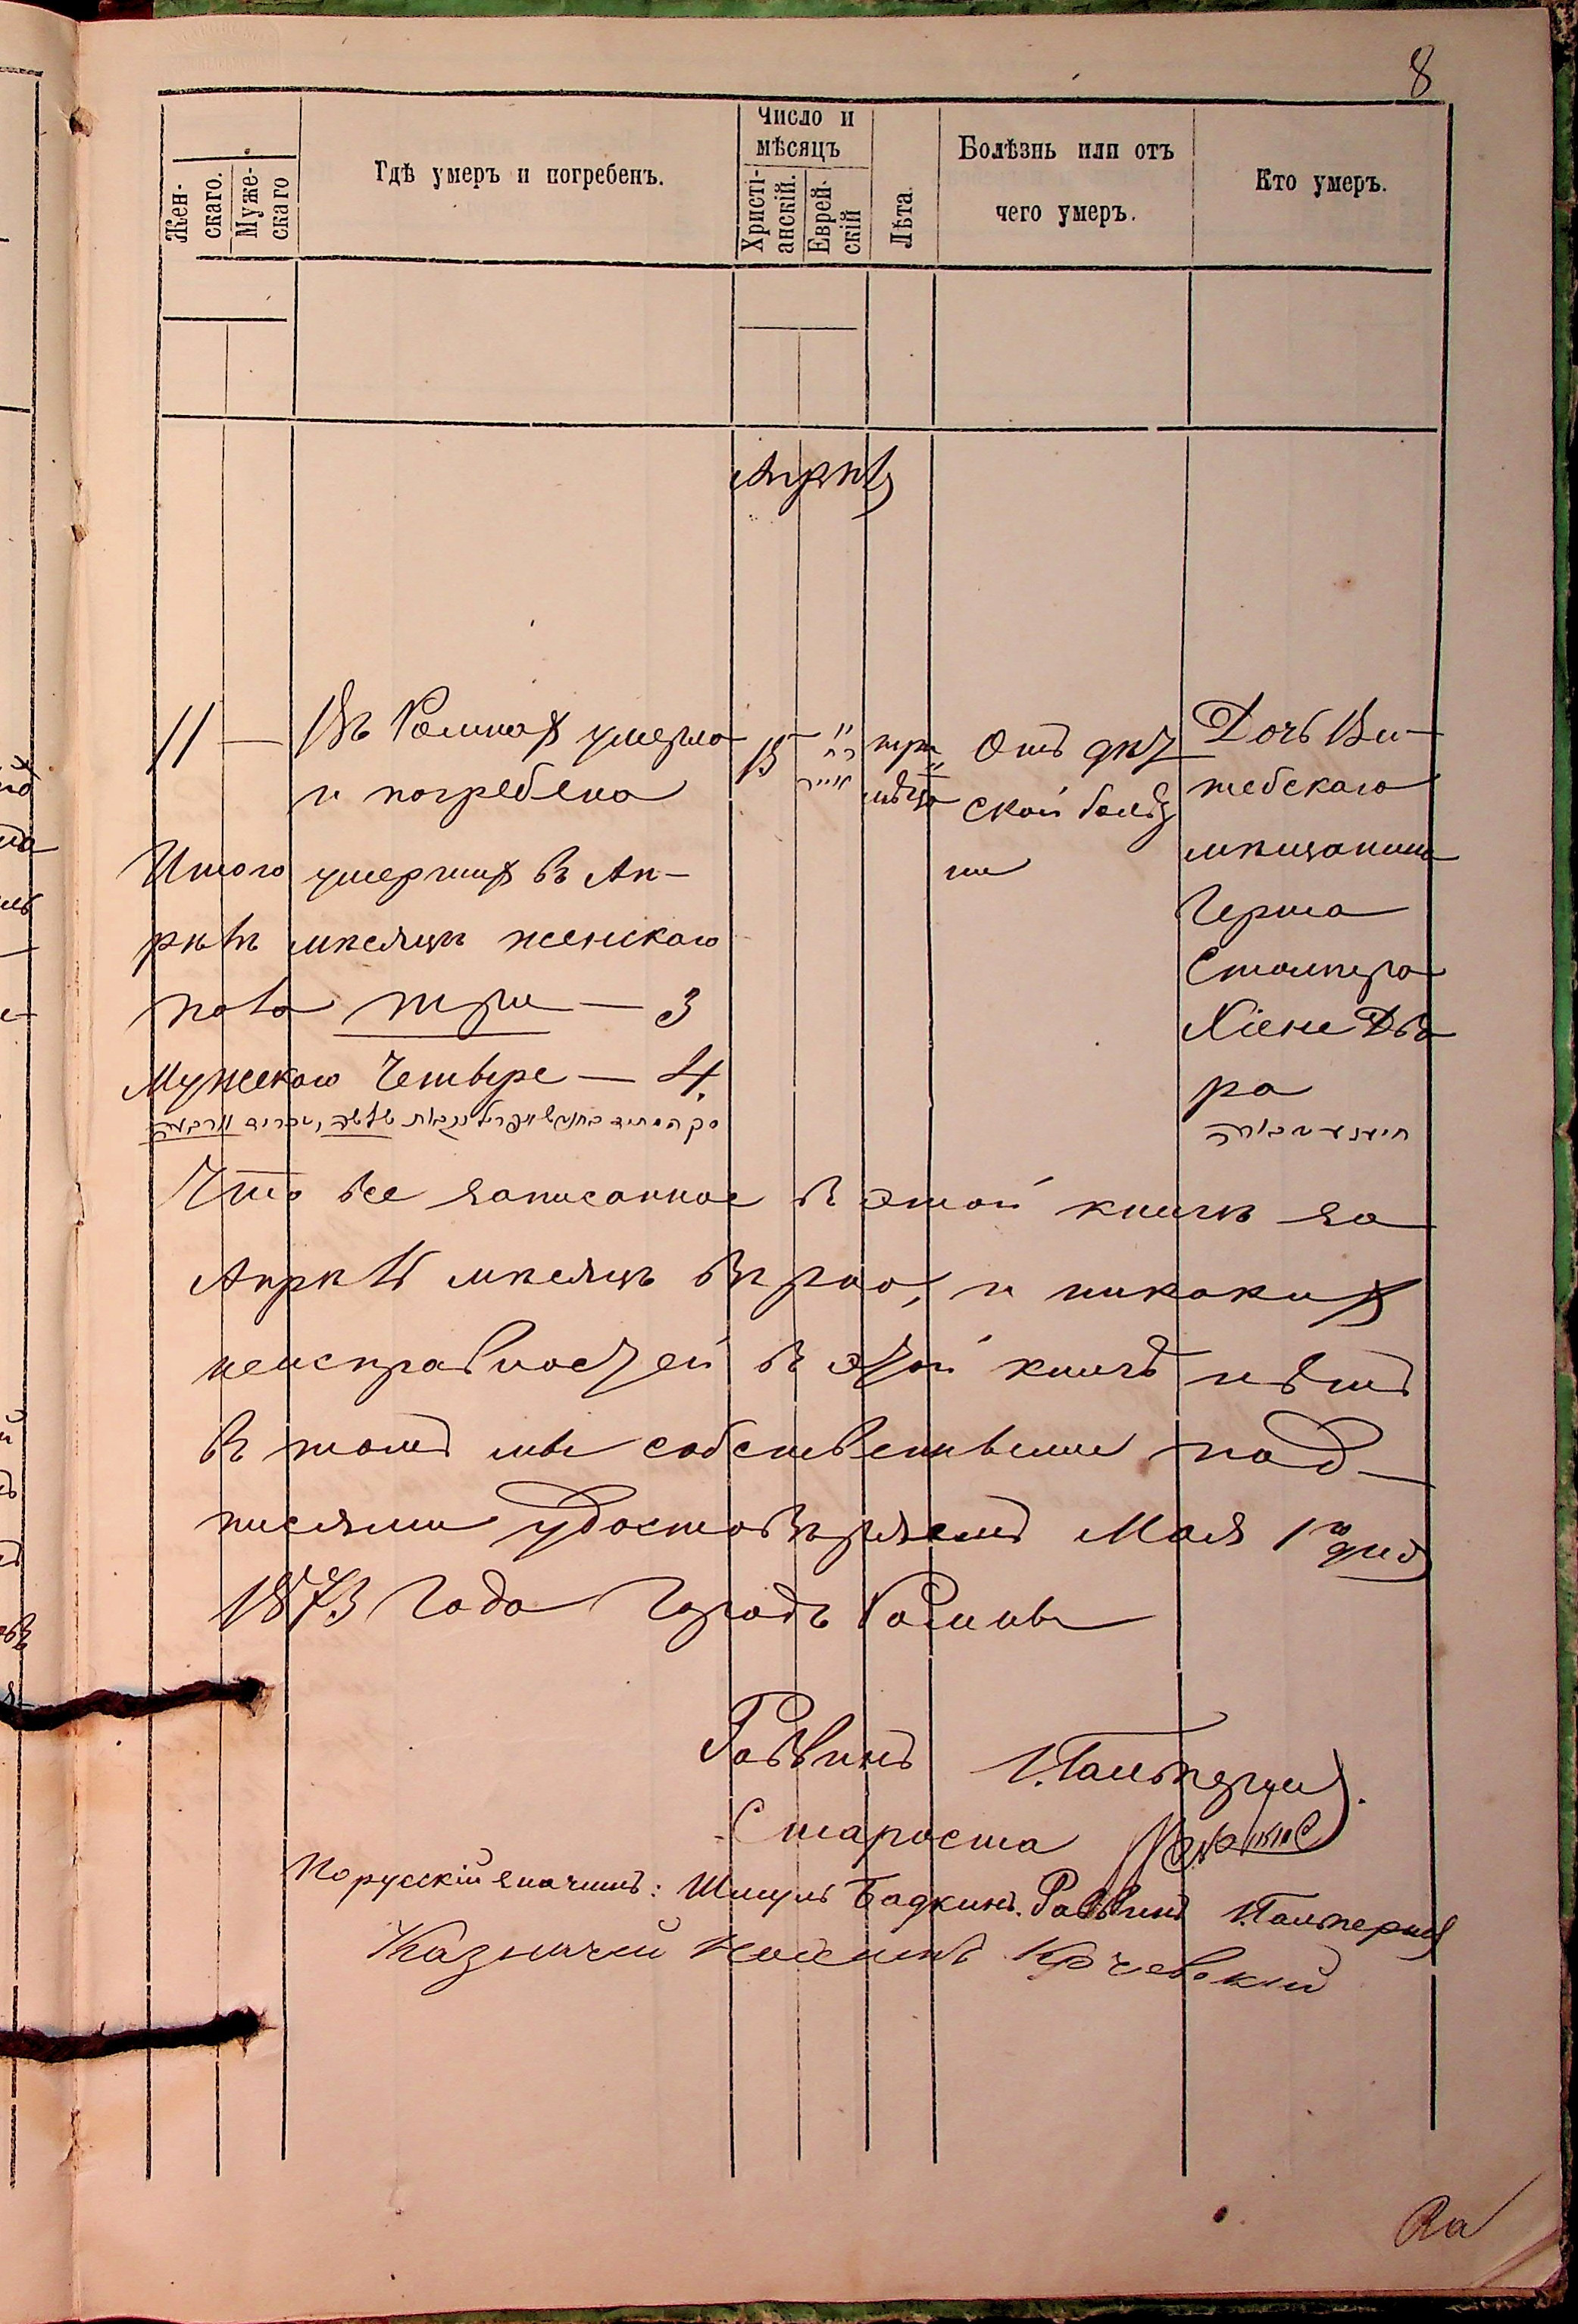 8
Жен-
скаго.
Муже-
скаго
Гдѣ умеръ и погребенъ.
Число и
мѣсяцъ
Христі-
анскій.
Еврей-
скій
Лѣта.
Болѣзнь или отъ
чего умеръ.
Кто умеръ.
Апрѣль
11 — Въ Ромнах умерла
и погребена
15
три
мѣсяца
Отъ дѣт
ской болѣз
ни
Дочь Ви-
тебскаго
мѣщанина
Герша
Стампера
Хіене Два
ра
Итого умерших въ Ап-
рѣлѣ мѣсяцѣ женскаго
пола три — 3
Мужескаго Четыре — 4.
Что все записанное въ этой книгѣ за
Апрѣль мѣсяцъ вѣрно, и никаких
неисправностей въ этой книгѣ нѣтъ
въ томъ мы собственными под-
писями удостовѣряемъ Мая 1го дня
1873 Года Городъ Ромны
Раввинъ І. Гальперин.
Староста
Порусскій значитъ: Шмуль Бадкинъ. Раввинъ І. Гальперин
Казначей